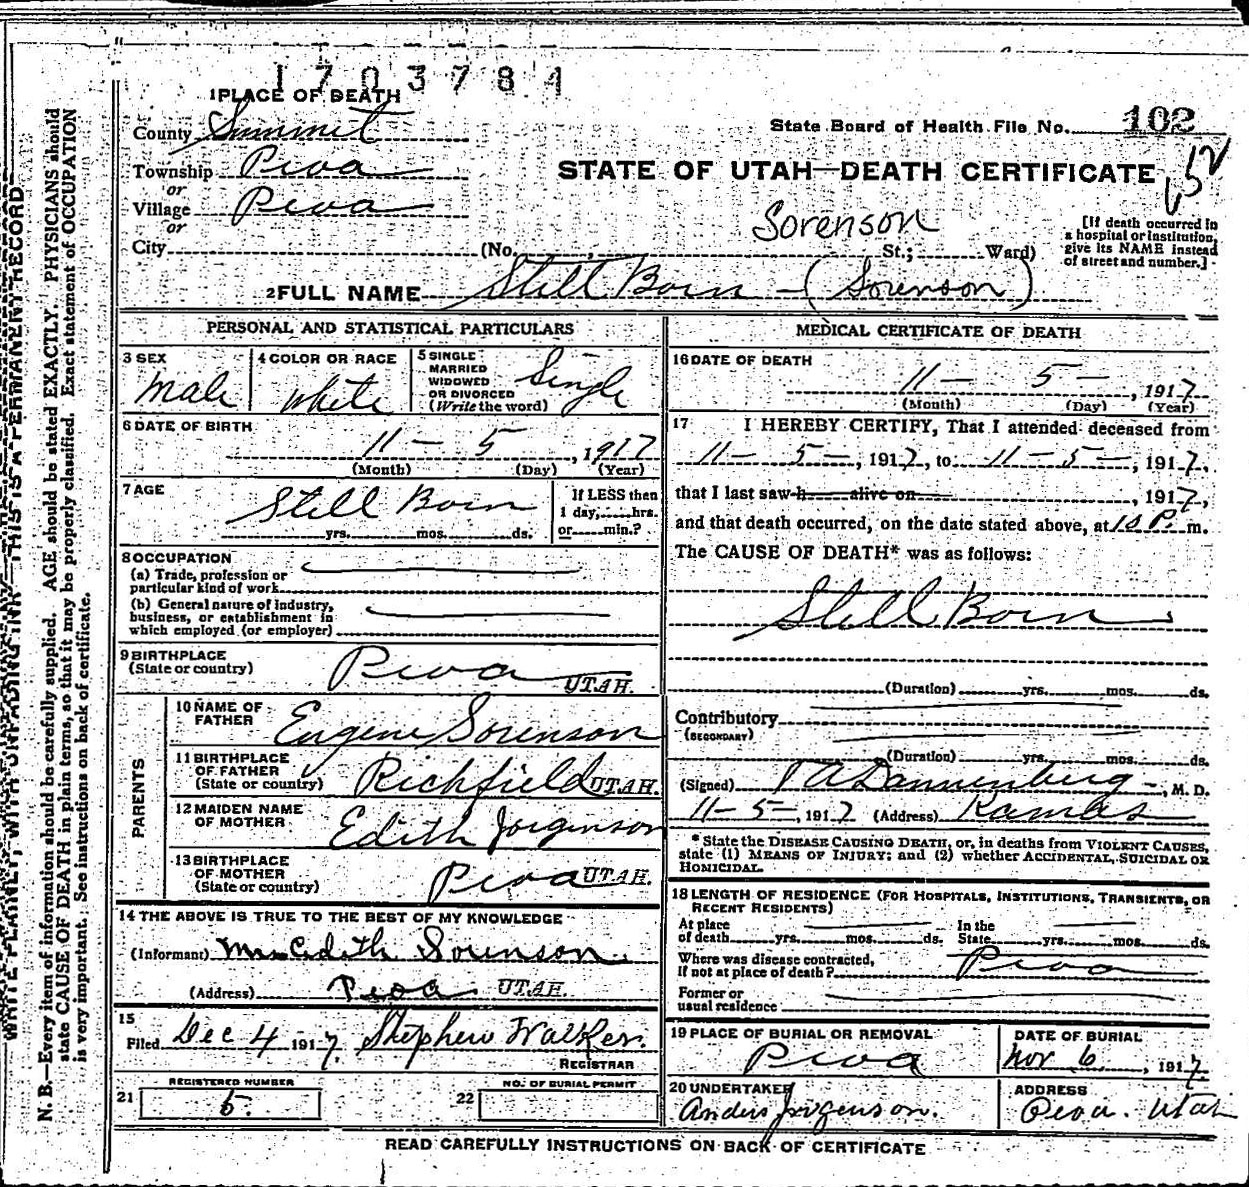 1703784
1 PLACE OF DEATH
County Summit
State Board of Health File No. 102
Township Peoa
STATE OF UTAH—DEATH CERTIFICATE
or
Village Peoa
or
Sorenson
City (No. St.; Ward)
[If death occurred in
a hospital or institution,
give its NAME instead
of street and number.]
2 FULL NAME Still Born - (Sorenson)
PERSONAL AND STATISTICAL PARTICULARS
3 SEX
male
4 COLOR OR RACE
white
5 SINGLE
MARRIED
WIDOWED
OR DIVORCED
(Write the word)
Single
6 DATE OF BIRTH
11 - 5, 1917
(Month) (Day) (Year)
7 AGE
Still Born
yrs. mos. ds.
If LESS then
1 day, hrs.
or min.?
8 OCCUPATION
(a) Trade, profession or
particular kind of work
(b) General nature of industry,
business, or establishment in
which employed (or employer)
9 BIRTHPLACE
(State or country)
Peoa UTAH.
PARENTS
10 NAME OF
FATHER
Eugene Sorenson
11 BIRTHPLACE
OF FATHER
(State or country)
Richfield UTAH.
12 MAIDEN NAME
OF MOTHER
Edith Jorgenson
13 BIRTHPLACE
OF MOTHER
(State or country)
Peoa UTAH.
14 THE ABOVE IS TRUE TO THE BEST OF MY KNOWLEDGE
(Informant) Mrs Edith Sorenson.
(Address) Peoa UTAH.
15
Filed Dec 4 1917. Stephen Walker.
REGISTRAR
21 REGISTERED NUMBER
5.
22 NO. OF BURIAL PERMIT
MEDICAL CERTIFICATE OF DEATH
16 DATE OF DEATH
11 - 5 -, 1917
(Month) (Day) (Year)
17 I HEREBY CERTIFY, That I attended deceased from
11 - 5 -, 1917, to 11 - 5 -, 1917,
that I last saw h alive on , 1917,
and that death occurred, on the date stated above, at 10 P. m.
The CAUSE OF DEATH* was as follows:
Still Born
(Duration) yrs. mos. ds.
Contributory
(SECONDARY)
(Duration) yrs. mos. ds.
(Signed) Dannenberg, M. D.
11 - 5 -, 1917 (Address) Kamas
* State the DISEASE CAUSING DEATH, or, in deaths from VIOLENT CAUSES,
state (1) MEANS OF INJURY; and (2) whether ACCIDENTAL, SUICIDAL OR
HOMICIDAL.
18 LENGTH OF RESIDENCE (FOR HOSPITALS, INSTITUTIONS, TRANSIENTS, OR
RECENT RESIDENTS)
At place In the
of death yrs. mos. ds. State yrs. mos. ds.
Where was disease contracted,
If not at place of death? Peoa
Former or
usual residence
19 PLACE OF BURIAL OR REMOVAL
Peoa
DATE OF BURIAL
Nov 6, 1917.
20 UNDERTAKER
Anders Jorgenson.
ADDRESS
Peoa. Utah
READ CAREFULLY INSTRUCTIONS ON BACK OF CERTIFICATE
WRITE PLAINLY, WITH UNFADING INK—THIS IS A PERMANENT RECORD
N. B.—Every item of information should be carefully supplied. AGE should be stated EXACTLY. PHYSICIANS should
state CAUSE OF DEATH in plain terms, so that it may be properly classified. Exact statement of OCCUPATION
is very important. See instructions on back of certificate.